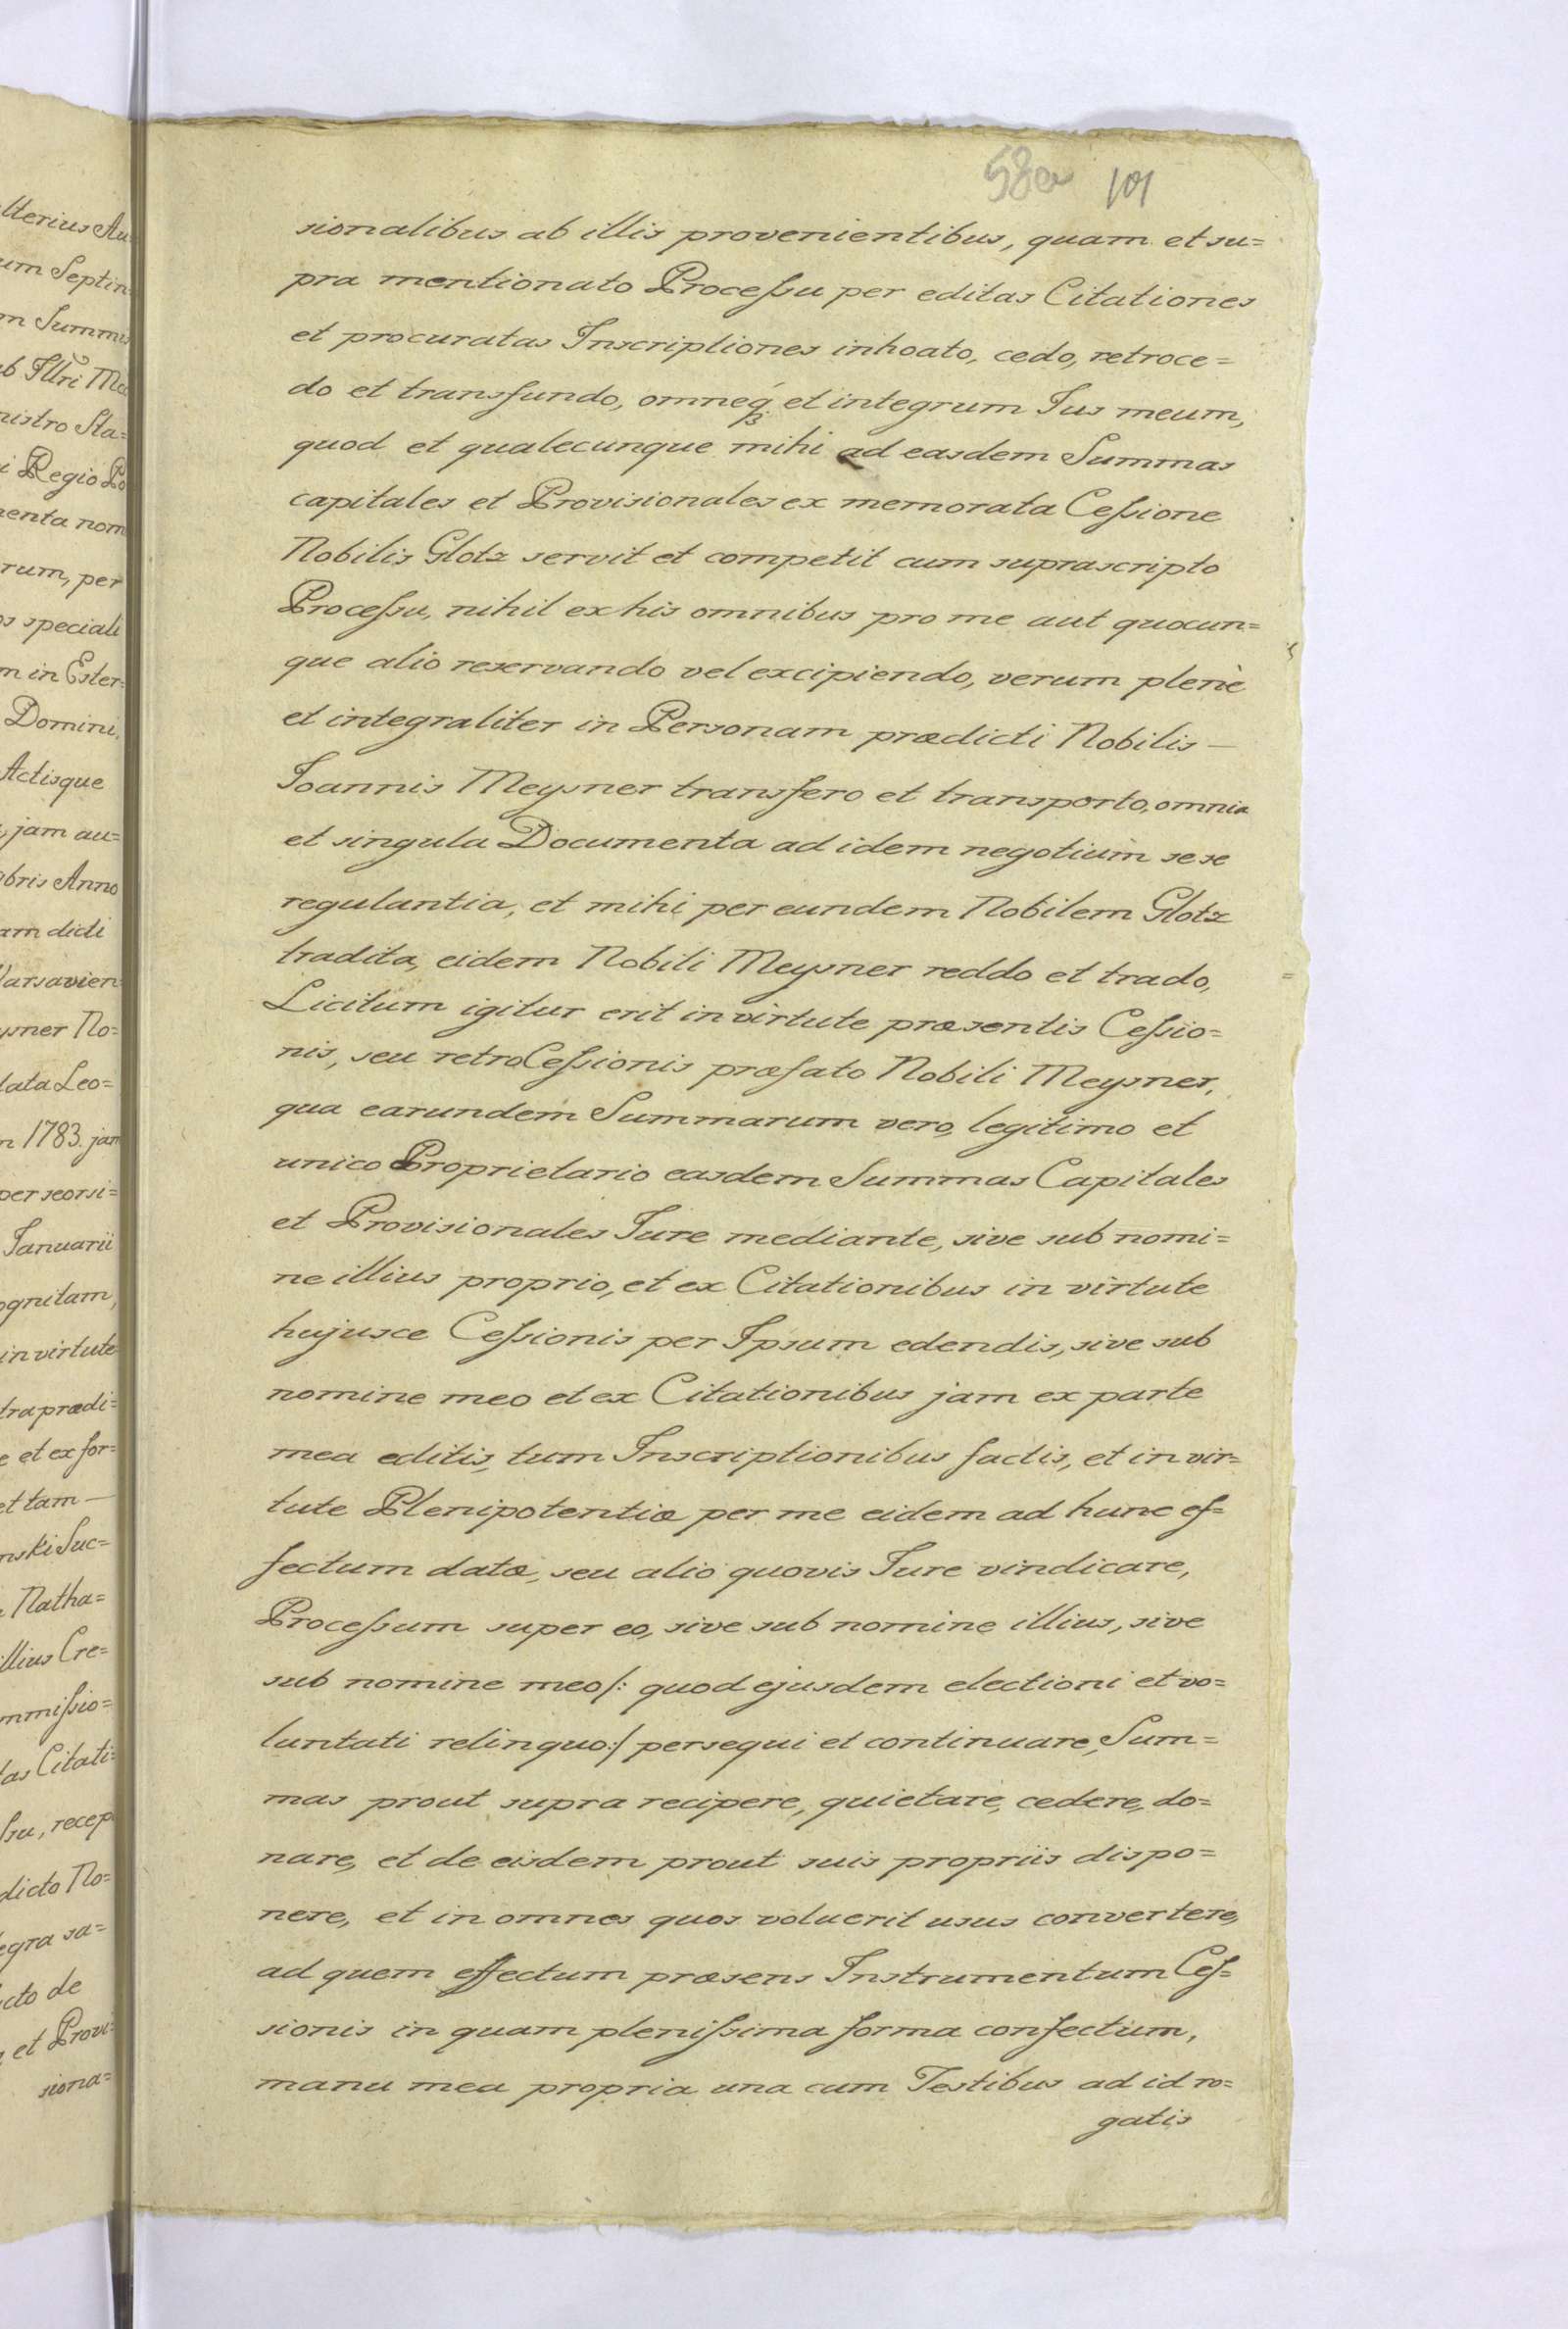 58a 101
sionalibus ab illis provenientibus, quam et su=
pra mentionato Processu per editas Citationes
et procuratas Inscriptiones inhoato, cedo, retroce=
do et transfundo, omneq; et integrum Jus meum,
quod et qualecunque mihi ad easdem Summas
capitales et Provisionales ex memorata Cessione
Nobilis Glotz servit et competit cum suprascripto
Processu, nihil ex his omnibus pro me aut quocun=
que alio reservando vel excipiendo, verum plenè
et integraliter in Personam prædicti Nobilis —
Joannis Meysner transfero et transporto, omnia
et singula Documenta ad idem negotium sese
regulantia, et mihi per eundem Nobilem Glotz
tradita, eidem Nobili Meysner reddo et trado,
Licitum igitur erit in virtute præsentis Cessio=
nis, seu retroCessionis præfato Nobili Meysner,
qua earundem Summarum vero, legitimo et
unico Proprietario easdem Summas Capitales
et Provisionales Jure mediante, sive sub nomi=
ne illius proprio, et ex Citationibus in virtute
hujusce Cessionis per Ipsum edendis, sive sub
nomine meo et ex Citationibus jam ex parte
mea editis, tum Inscriptionibus factis, et in vir=
tute Plenipotentiæ per me eidem ad hunc ef=
fectum datæ, seu alio quovis Jure vindicare,
Processum super eo, sive sub nomine illius, sive
sub nomine meo /: quod ejusdem electioni et vo=
luntati relinquo :/ persequi et continuare, Sum=
mas prout supra recipere, quietare, cedere, do=
nare, et de eisdem prout suis propriis dispo=
nere, et in omnes quos voluerit usus convertere,
ad quem effectum præsens Instrumentum Ces=
sionis in quam plenissima forma confectum,
manu mea propria una cum Testibus ad id ro=
gatis